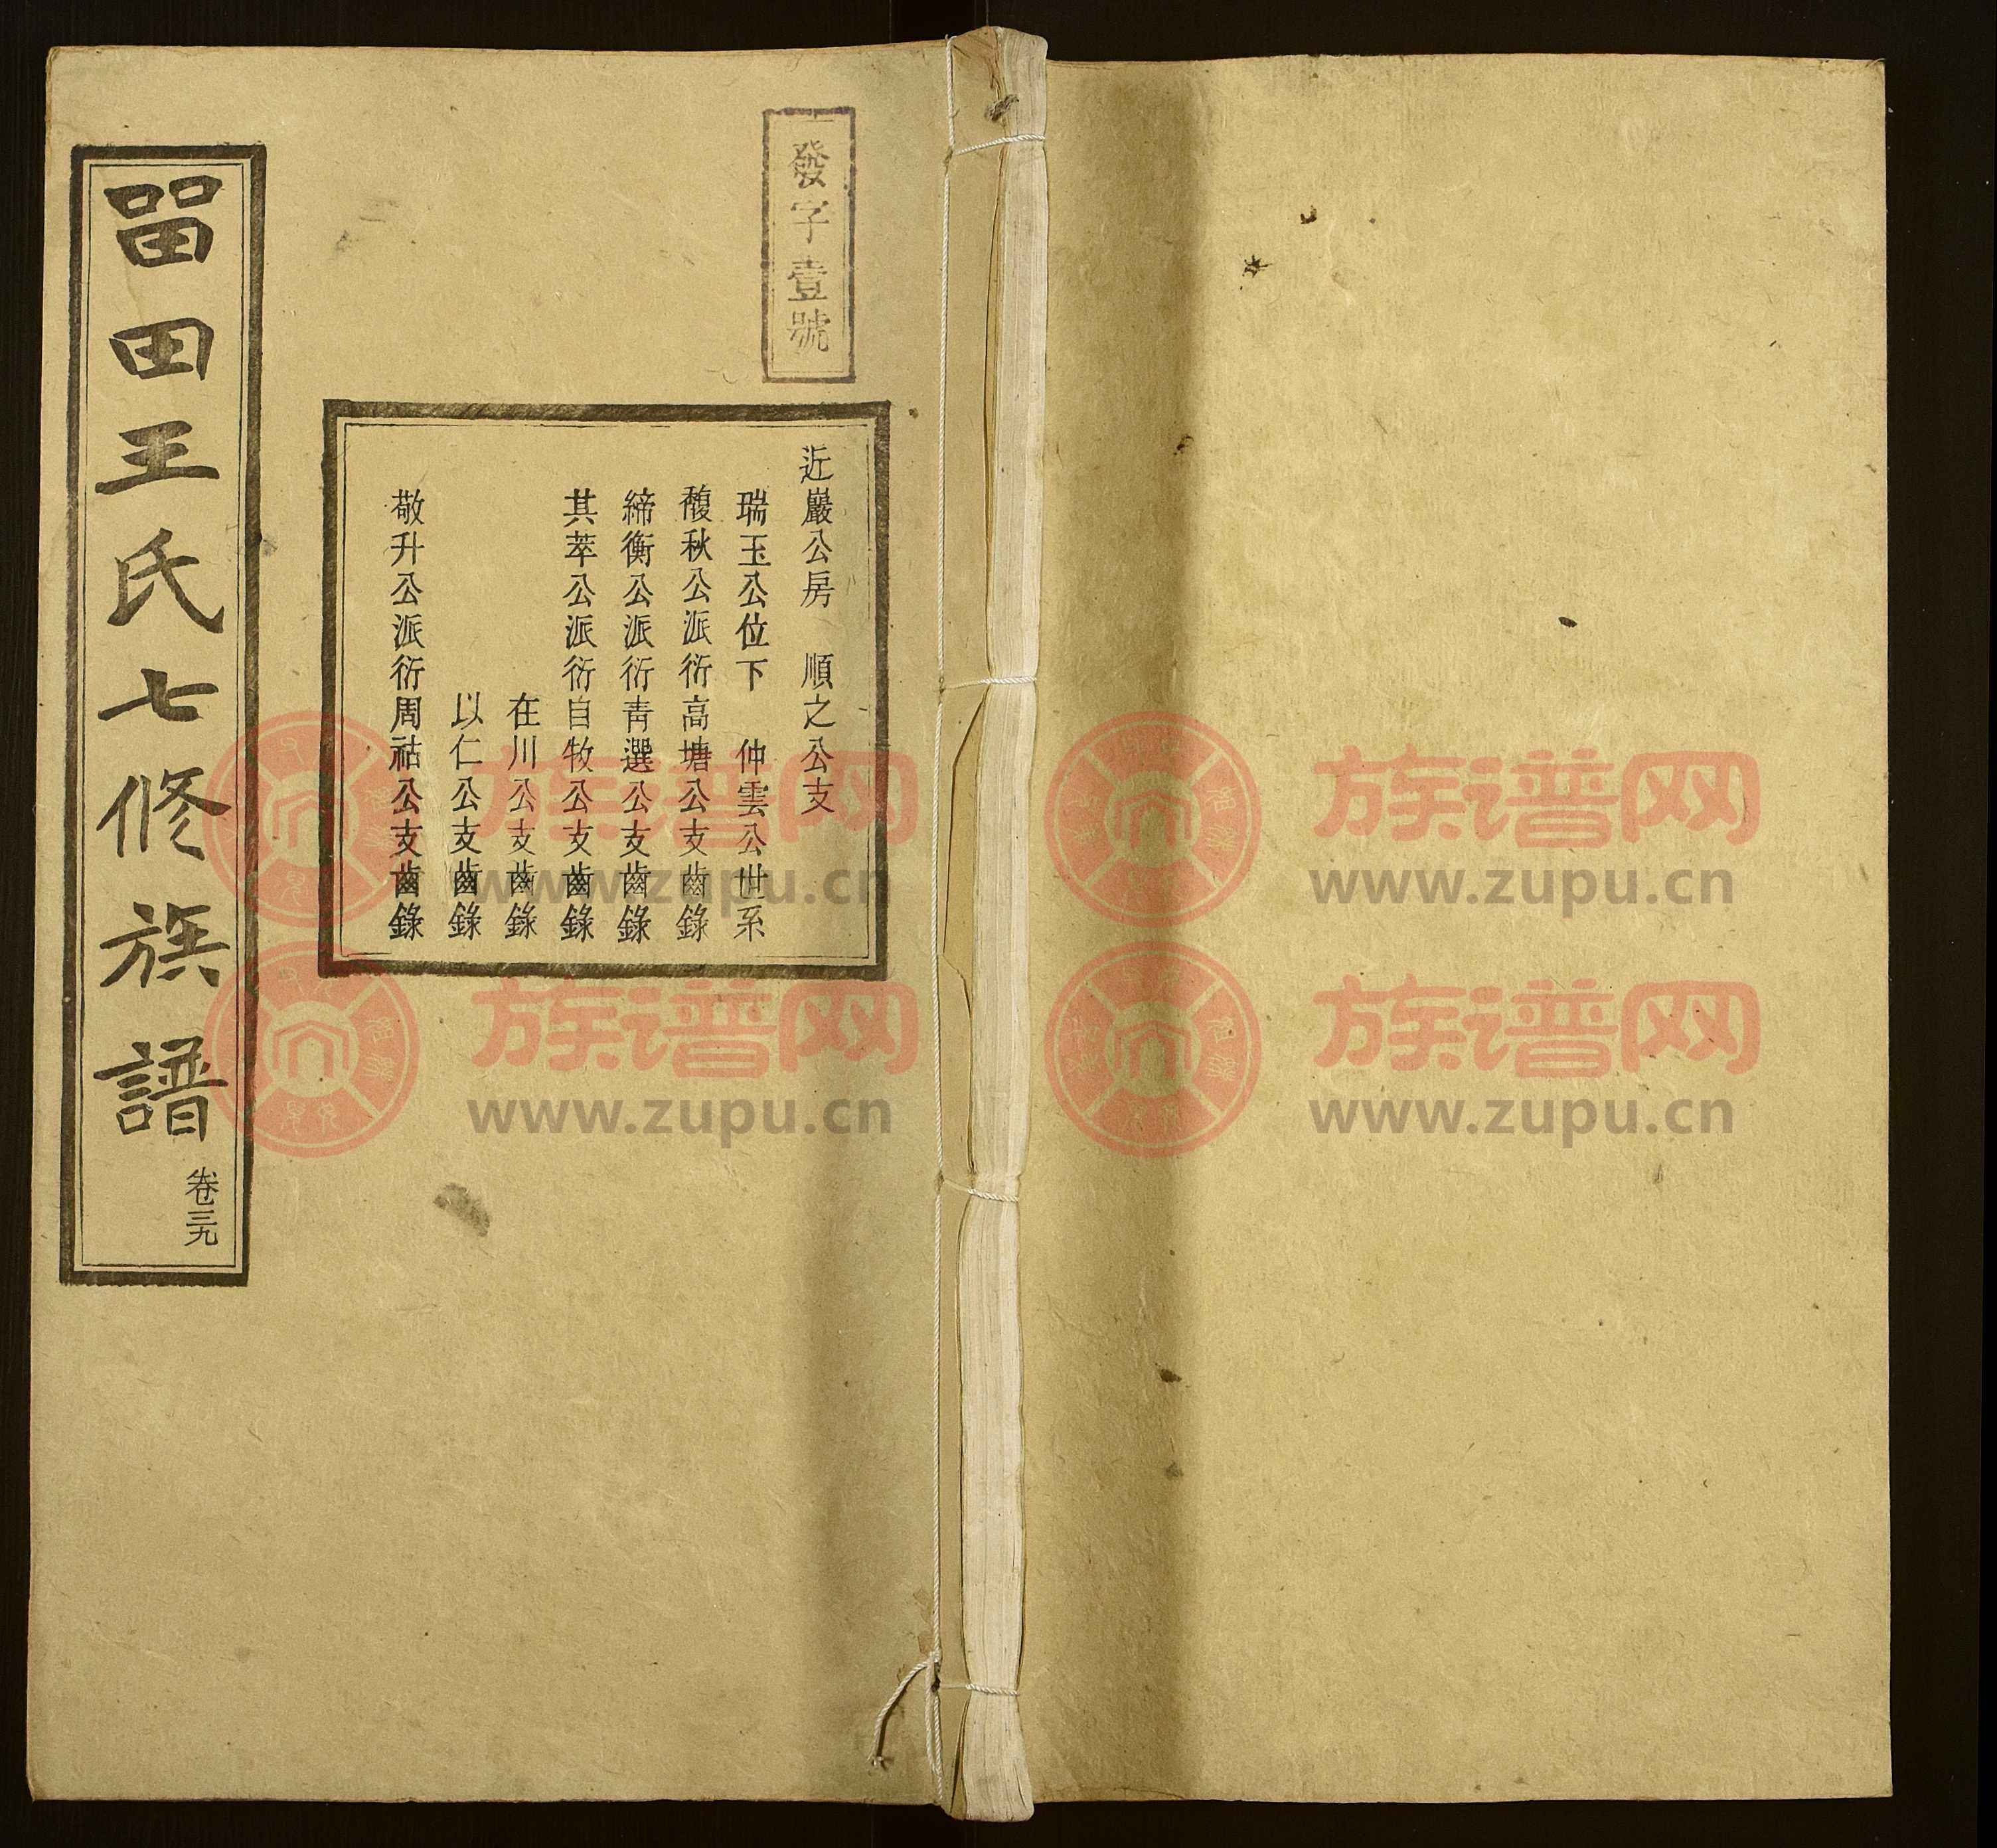 發字壹號
近巖公房　順之公支
瑞玉公位下　仲雲公世系
馥秋公派衍高塘公支齒錄
締衡公派衍青選公支齒錄
其萃公派衍自牧公支齒錄
在川公支齒錄
以仁公支齒錄
敬升公派衍周祜公支齒錄
畱田王氏七修族譜
卷三九
族谱网
www.zupu.cn
族谱网
www.zupu.cn
族谱网
www.zupu.cn
族谱网
www.zupu.cn